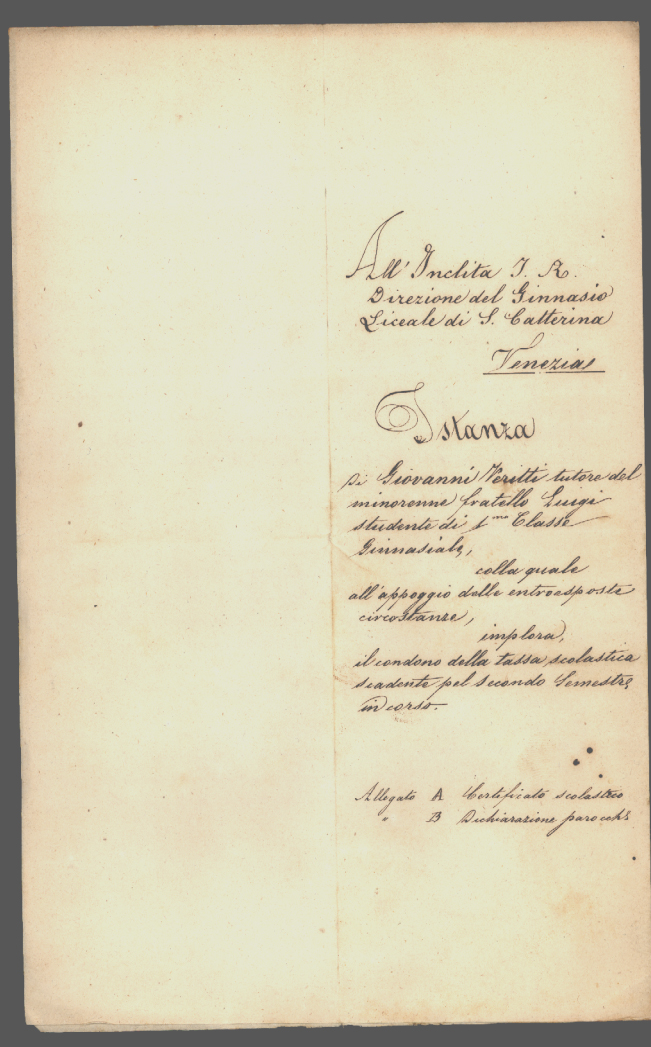 All' Inclita I. R.
Direzione del Ginnasio
Liceale di S. Catterina
Venezia
Istanza
Di Giovanni Veritti tutore del
minorenne fratello Luigi
studente di 1ma Classe
Ginnasiale,
colla quale
all'appoggio delle entroesposte
circostanze,
implora,
il condono della tassa scolastica
scadente pel secondo Semestre
in corso.
Allegato A Certificato scolastico
" B Dichiarazione parocchle